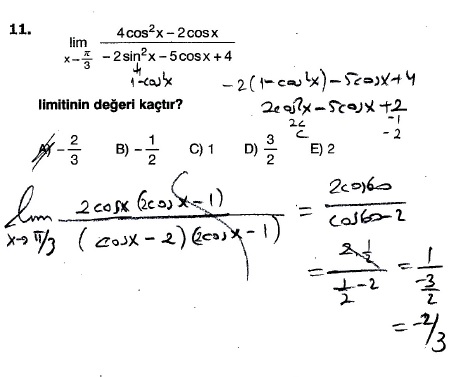 11.
lim x→π/3 (4cos²x – 2cosx)/(–2sin²x – 5cosx + 4)
1-cos²x
-2(1-cos²x)-5cosx+4
limitinin değeri kaçtır?
2cos²x-5cosx+2
2c -1
c -2
A) –2/3 B) –1/2 C) 1 D) 3/2 E) 2
lim x→π/3 2cosx(2cosx-1)/(cosx-2)(2cosx-1) = 2cos60/cos60-2
= 2.1/2/(1/2-2) = 1/(-3/2)
= -2/3